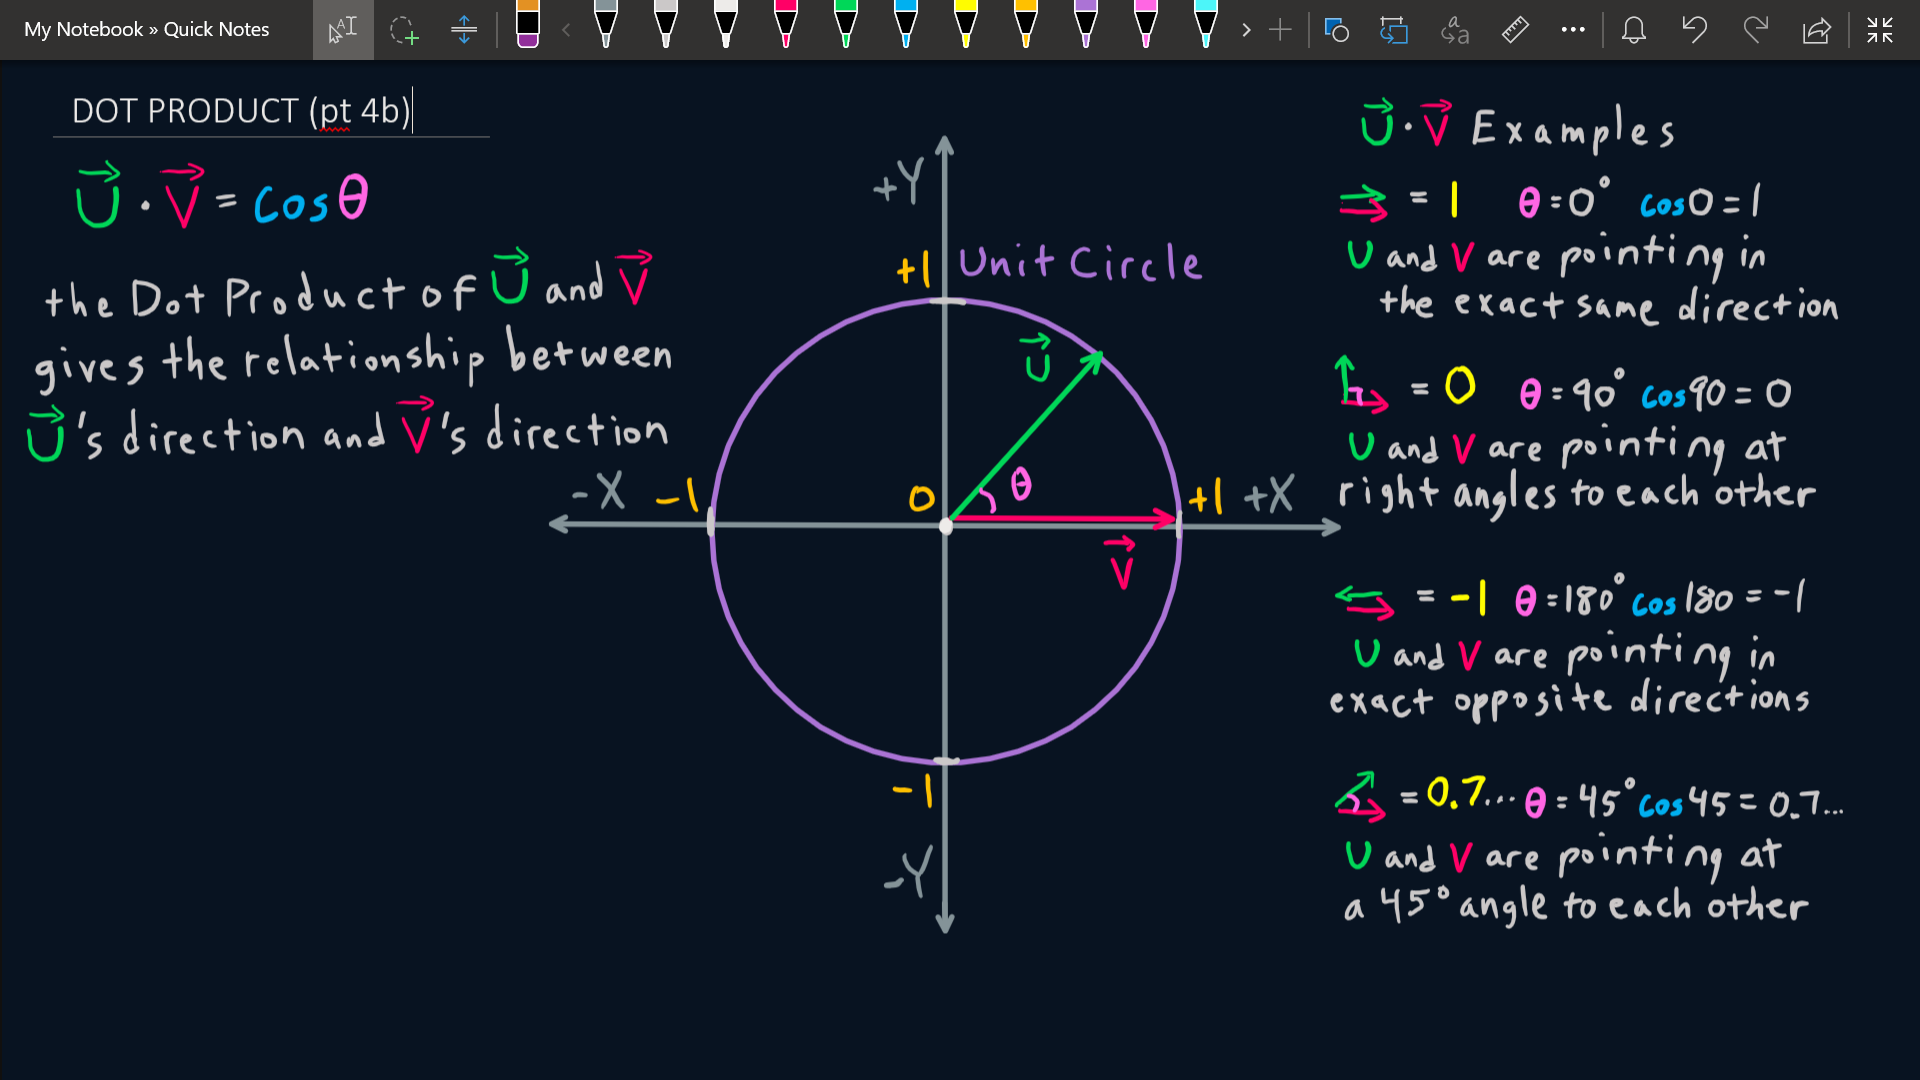 My Notebook » Quick Notes
DOT PRODUCT (pt 4b)
U · V = cos θ
the Dot Product of U and V
gives the relationship between
U's direction and V's direction
+Y
+1 Unit Circle
U
-X -1 0 θ +1 +X
V
-1
-Y
U · V Examples
= 1 θ = 0° cos 0 = 1
U and V are pointing in
the exact same direction
= 0 θ = 90° cos 90 = 0
U and V are pointing at
right angles to each other
= -1 θ = 180° cos 180 = -1
U and V are pointing in
exact opposite directions
= 0.7... θ = 45° cos 45 = 0.7...
U and V are pointing at
a 45° angle to each other